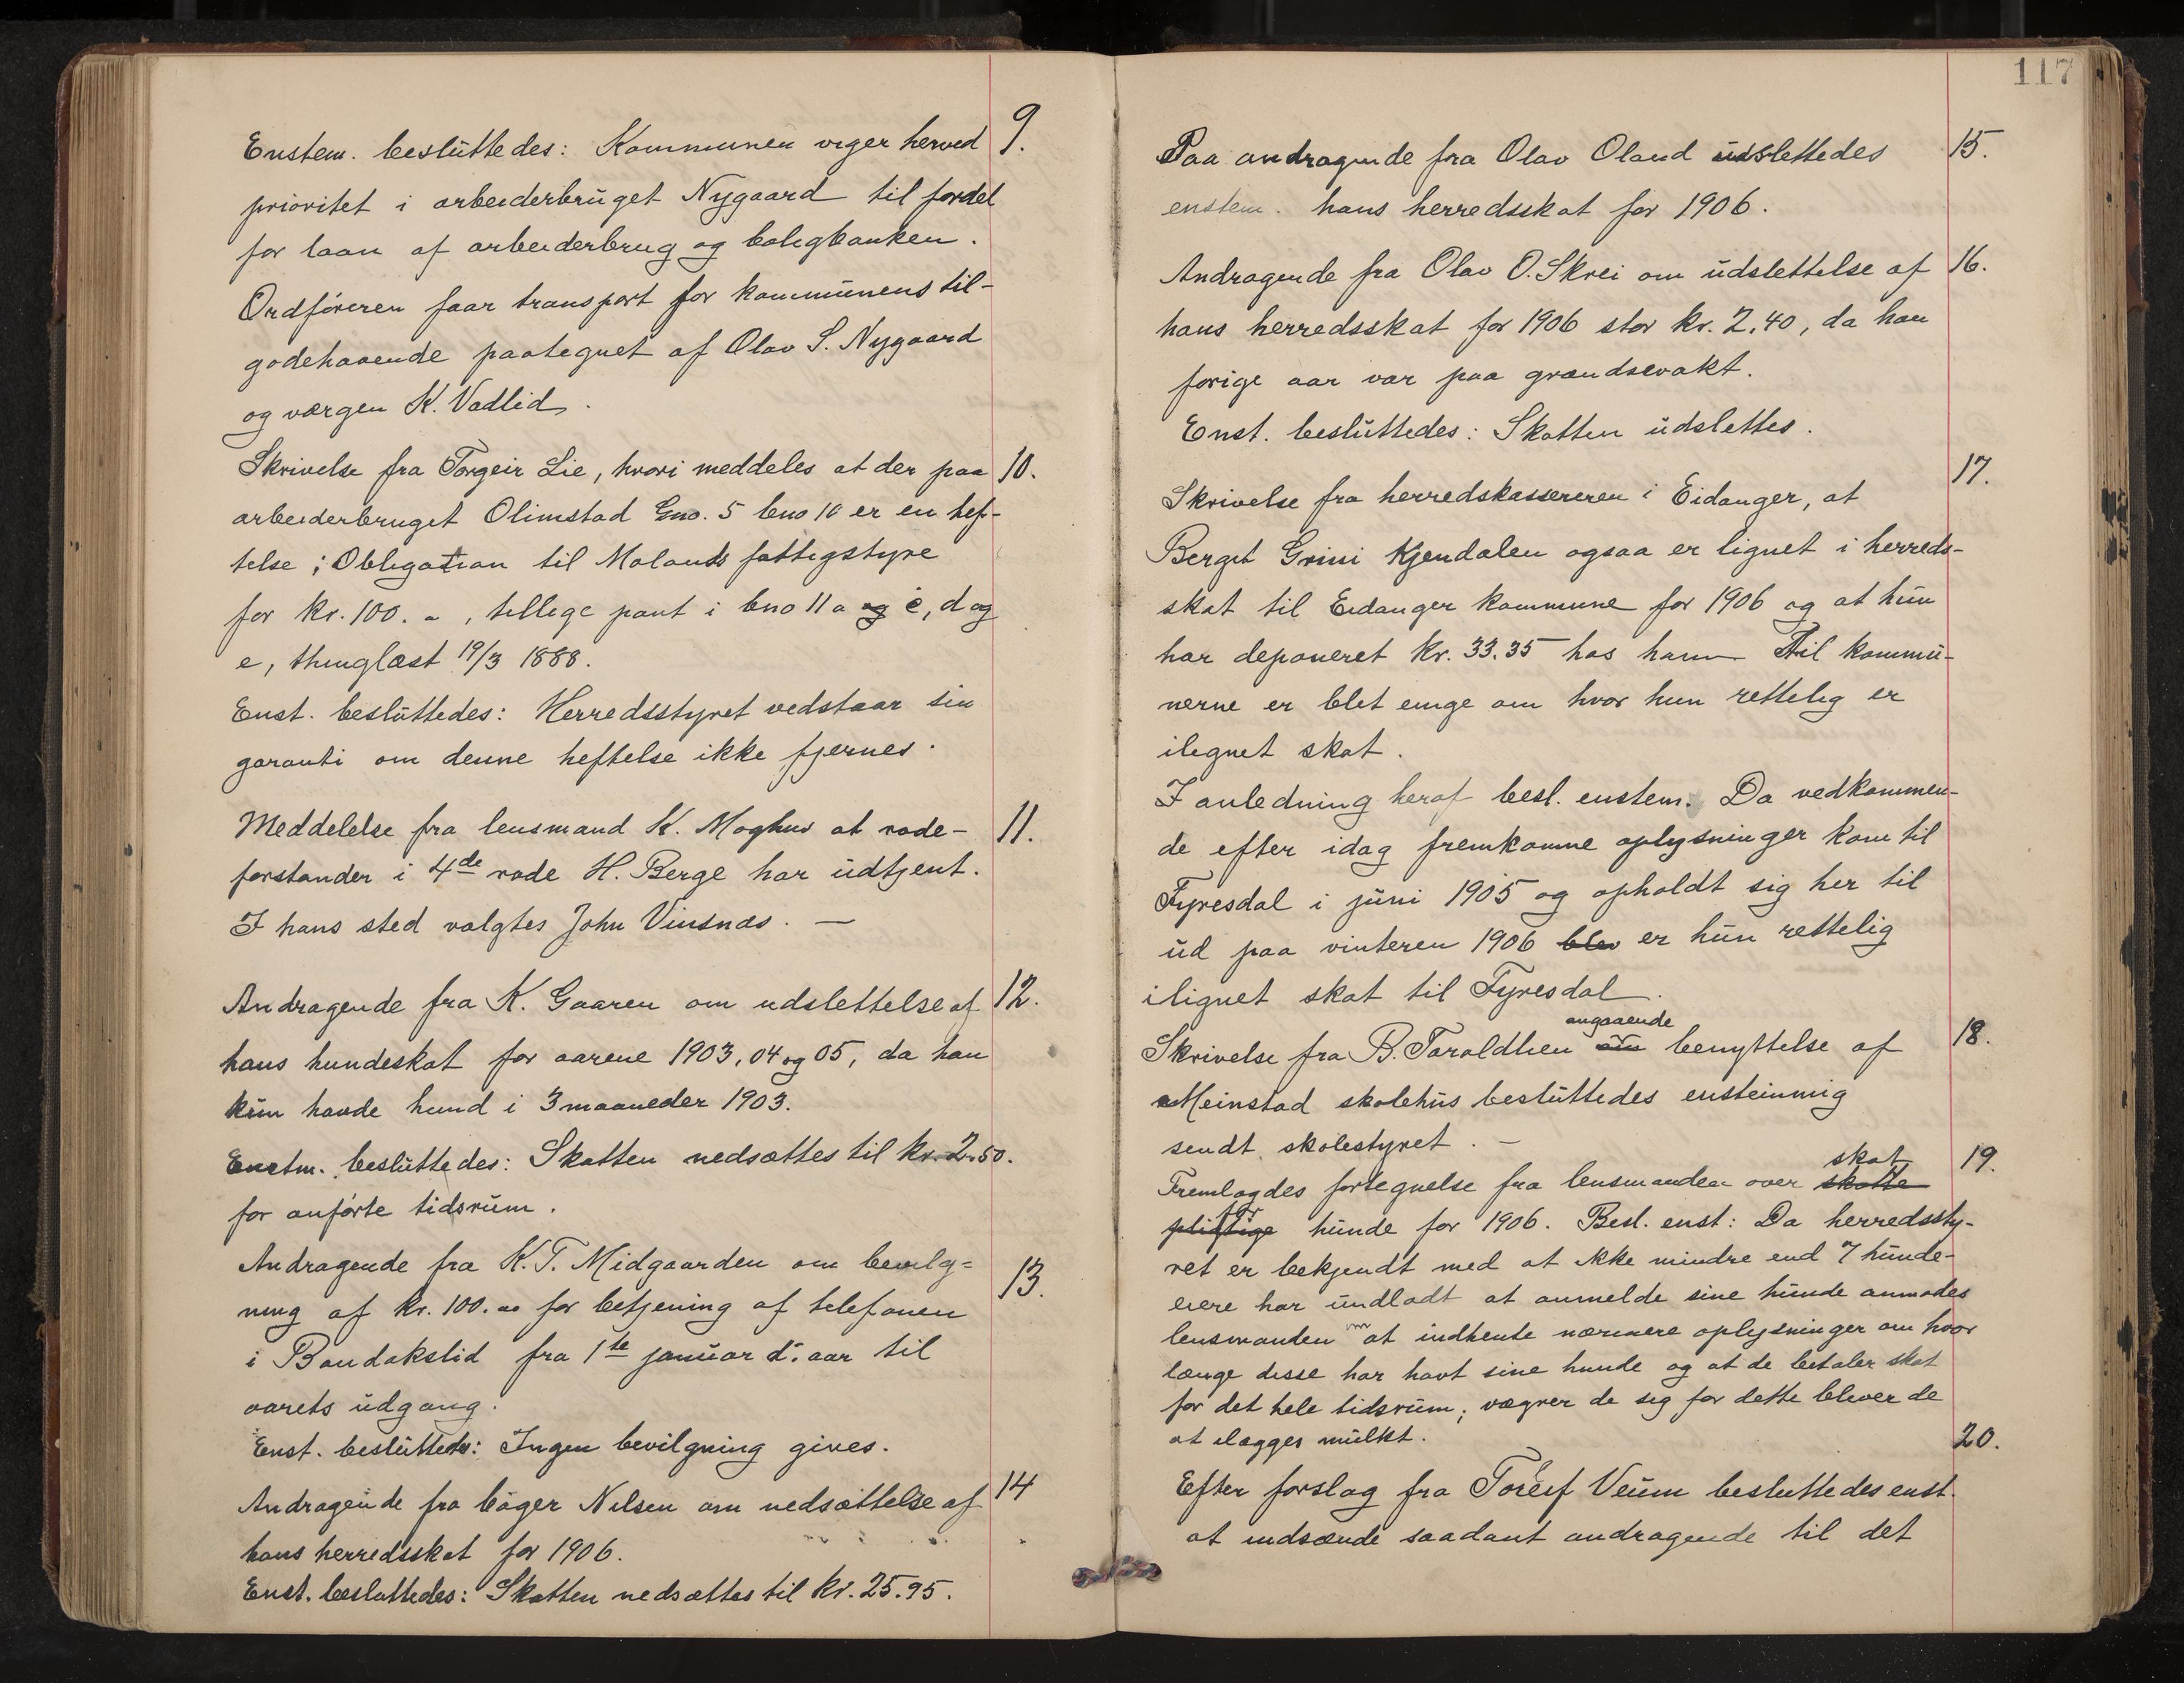 9.
Enstem. besluttedes: Kommunen viger herved
prioritet i arbeiderbruget Nygaard til fordel
for laan af arbeiderbrug og boligbanken.
Ordføreren faar transport for kommunens til-
godehavende paategnet af Olav S. Nygaard
og værgen K. Vadlid.
10.
Skrivelse fra Torgeir Lie, hvori meddeles at der paa
arbeiderbruget Olimstad Gno. 5 bno 10 er en hef-
telse; Obligation til Molands fattigstyre
for kr. 100. -, tillige pant i bno 11 a og c, d og
e, thinglæst 19/3 1888.
Enst. besluttedes: Herredsstyret vedstaar sin
garanti om denne heftelse ikke fjernes.
11.
Meddelelse fra lensmand K. Moghus at rode-
forstander i 4de rode H. Berge har udtjent.
I hans sted valgtes John Vinsnæs. —
12.
Andragende fra K. Gaaren om udslettelse af
hans hundeskat for aarene 1903, 04 og 05, da han
kun havde hund i 3 maaneder 1903.
Enstm. besluttedes: Skatten nedsættes til kr. 2.50.
for anførte tidsrum.
13.
Andragende fra K. T. Midgaarden om bevilg=
ning af kr. 100.00 for betjening af telefonen
i Bandakslid fra 1te januar d. aar til
aarets udgang.
Enst. besluttedes: Ingen bevilgning gives.
14
Andragende fra bager Nilsen om nedsættelse af
hans herredsskat for 1906.
Enst. besluttedes: Skatten nedsættes til kr. 25.95.
117
15.
Paa andragende fra Olav Oland udslettedes
enstem. hans herredsskat for 1906.
16.
Andragende fra Olav O. Skrei om udslettelse af
hans herredsskat for 1906 stor kr. 2,40, da han
forige aar var paa grændsevakt.
Enst. besluttedes: Skatten udslettes.
17.
Skrivelse fra herredskassereren i Eidanger, at
Berget Grini Kjendalen ogsaa er lignet i herreds-
skat til Eidanger kommune for 1906 og at hun
har deponeret kr. 33.35 hos ham til kommu-
nerne er blet enige om hvor hun rettelig er
ilignet skat.
I anledning heraf besl. enstem. Da vedkommen-
de efter idag fremkomne oplysninger kom til
Fyresdal i juni 1905 og opholdt sig her til
ud paa vinteren 1906 blev er hun rettelig
ilignet skat til Fyresdal.
18.
angaaende
Skrivelse fra B. Taraldlien om benyttelse af
Meinstad skolehus besluttedes ensteinmig
sendt skolestyret. —
19.
skat
Fremlagdes fortegnelse fra lensmanden over skatte
for
pligtige hunde for 1906. Besl. enst: Da herredssty-
ret er bekjendt med at ikke mindre end 7 hunde-
eiere har undladt at anmelde sine hunde anmodes
lensmanden om at indhente nærmere oplysninger om hvor
længe disse har havt sine hunde og at de betaler skat
for det hele tidsrum; vægrer de sig for dette bliver de
at ilægges mulkt.
20.
Efter forslag fra Toreif Veum besluttedes enst.
at indsænde saadant andragende til det